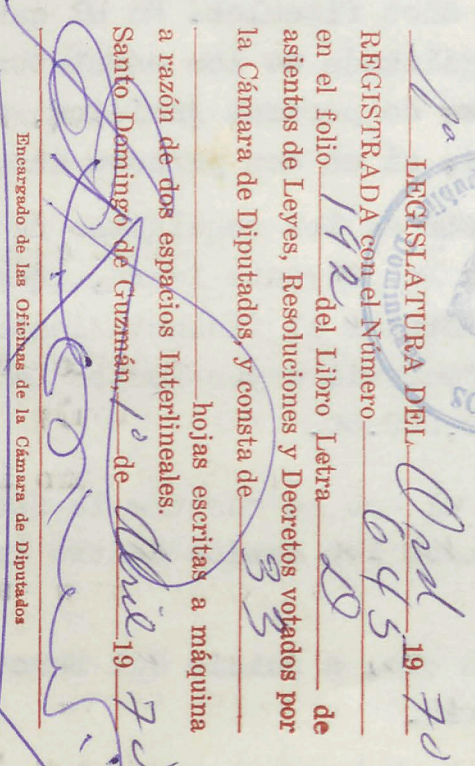 1ª LEGISLATURA DEL Ord 1970
REGISTRADA con el Número 645
en el folio 192 del Libro Letra D de
asientos de Leyes, Resoluciones y Decretos votados por
la Cámara de Diputados, y consta de 33
hojas escritas a máquina
a razón de dos espacios Interlineales.
Santo Domingo de Guzmán, 1º de Abril 1970
Encargado de las Oficinas de la Cámara de Diputados